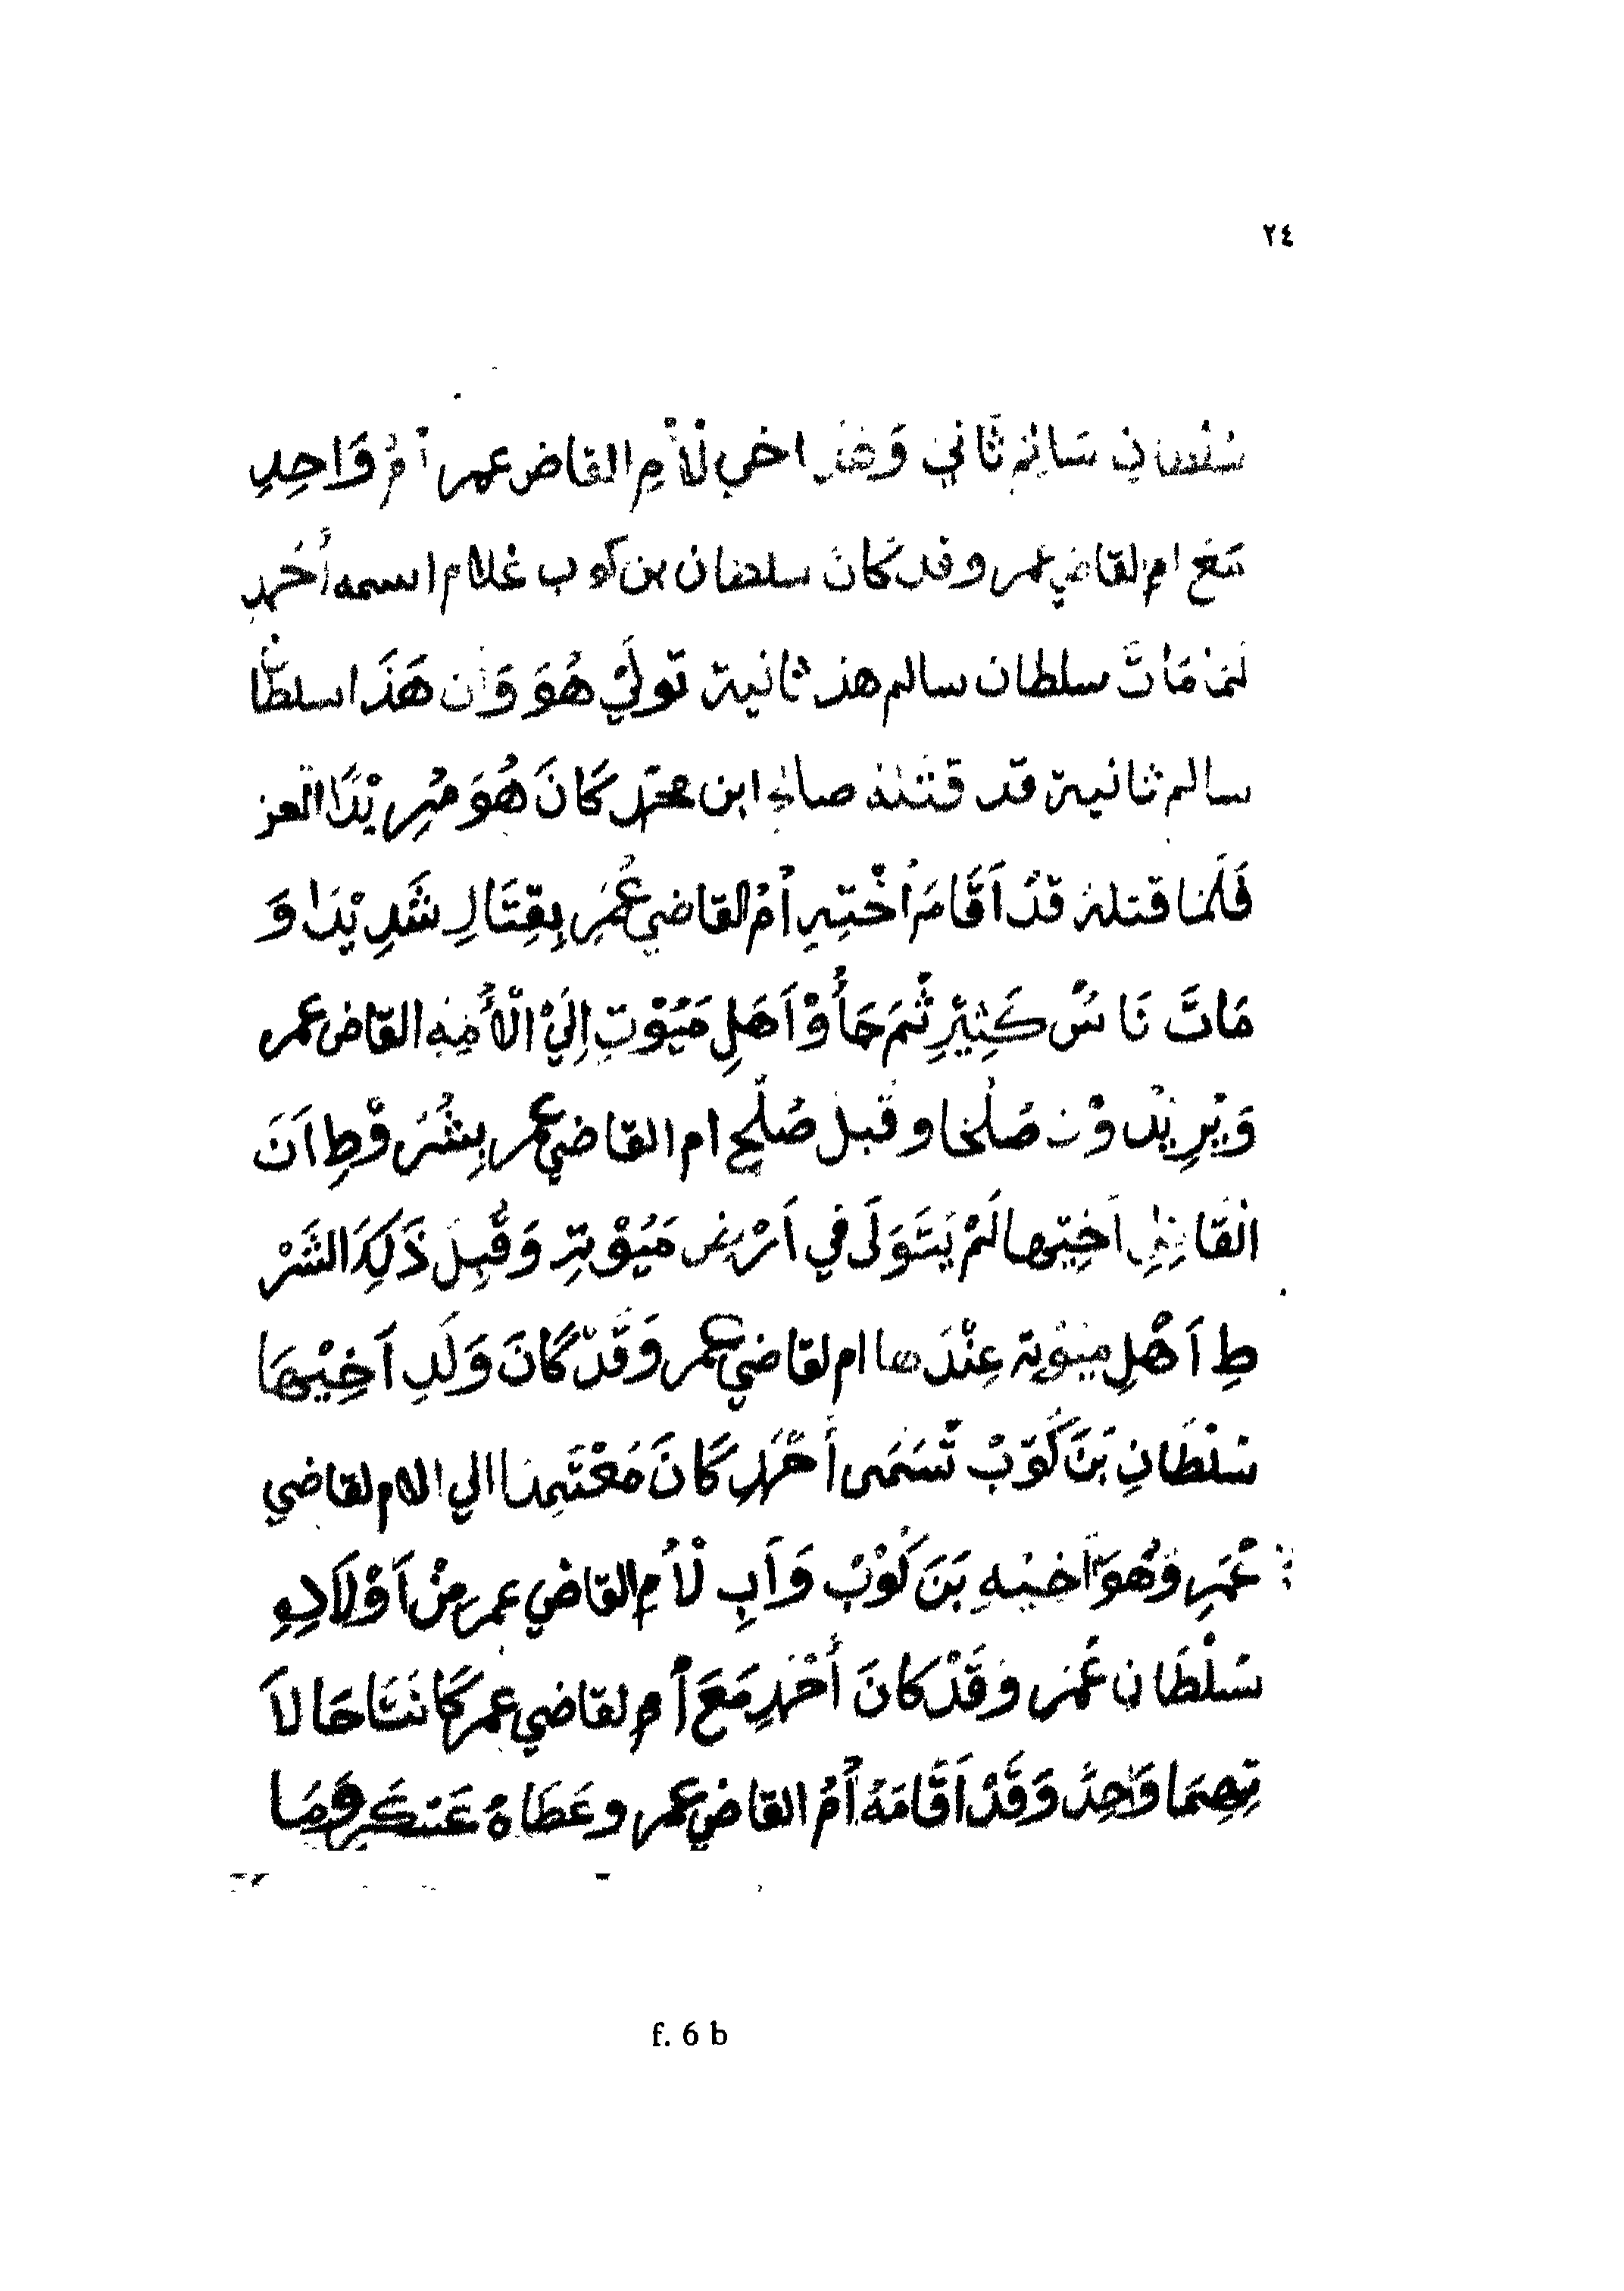 ٢٤
سُلْطَانِ سَالِمْ ثَانِي وَهَذ اخي لْأُمِ القاض عمر اُمُ وَاحِدِ
مَعَ امِ لقاضي عمر و قد كَانَ سلطان بن كوب غلام اسمه أَحْمَد
لَمَا مَاتَ سلطان سالم هذ ثانية تولي هُوَ وَان هَذَا سلطَان
سالم ثانية قد قتله صالح ابن محمّد كَانَ هُوَ مُرِيْدًا العز
فَلَمَا قتلهُ قدْ اَقَامَ اُخْتِهِ اُمْ القاضي عُمَرِ بِقِتَالِ شَدِيْدَا وَ
مَاتَ نَاسُ كَثِيْرِ ثُمَ جَأُوْ اَهَلِ مَيُوْتِ اِلَيْ الْأُمِهِ القاض عمر
وَيْرِيْدُوْنَ صُلْحَا وقَبلَ صُلْحِ ام القاضي عمر بِشُرُوْطِ اَنَ
الْقَاضِي اَخِيْها لَمْ يَتَوَلَى فِي اَرْضِ مَيُوْتِ وَقُبِلَ ذَلِكَ الشَرْ
طِ اَهْلِ مَيُوْتِ عِنْدَها ام لقاضي عمر وَقَدْ كَانَ وَلَدِ اَخِيْهَا
سُلْطَانِ بَنَ كُوَبْ تُسَمَى أَحْمَدِ كَانَ مُعْتَمِدَا الي الام لقاضي
عُمَرِ وَهُوَ اَخيْهِ بَنَ كُوْبُ وَاَبِ لْأُمِ القاضي عمر مِنْ اَوْلَادِهِ
سُلْطَانِ عُمَر وَقَدْ كَانَ أَحْمَدِ مَعَ أُمِ لقاضي عمر كَانَتَا حَالاَ
تِهِمَا وَاحِدً وَقَدْ اَقَامَهُ أُمُ القاضي عمر وعَطَاهُ عَسْكَرِ وَمَا
f. 6 b